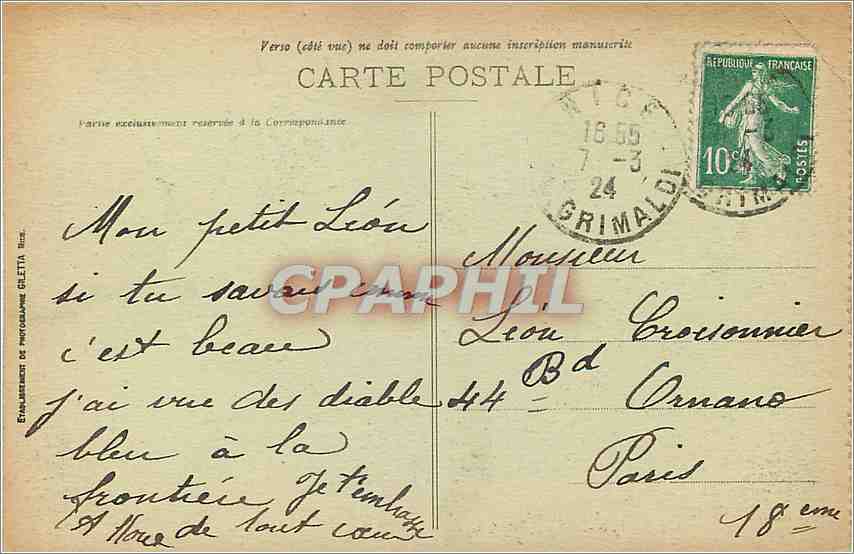 Verso (côté vue) ne doit comporter aucune inscription manuscrite
CARTE POSTALE
Partie exclusivement réservée à la Correspondance
REPUBLIQUE FRANÇAISE
10c
POSTES
NICE
16 55
7 -3
24
GRIMALDI
GRIM
ETABLISSEMENT DE PHOTOGRAPHIE GILETTA NICE.
CPAPHIL
Mon petit Léon
si tu savais comme
c'est beau
j'ai vue des diable
bleu à la
frontière Je t'embrasse
de tout cœur
Monsieur
Léon Croisonnier
44 Bd Ornano
Paris
18 eme